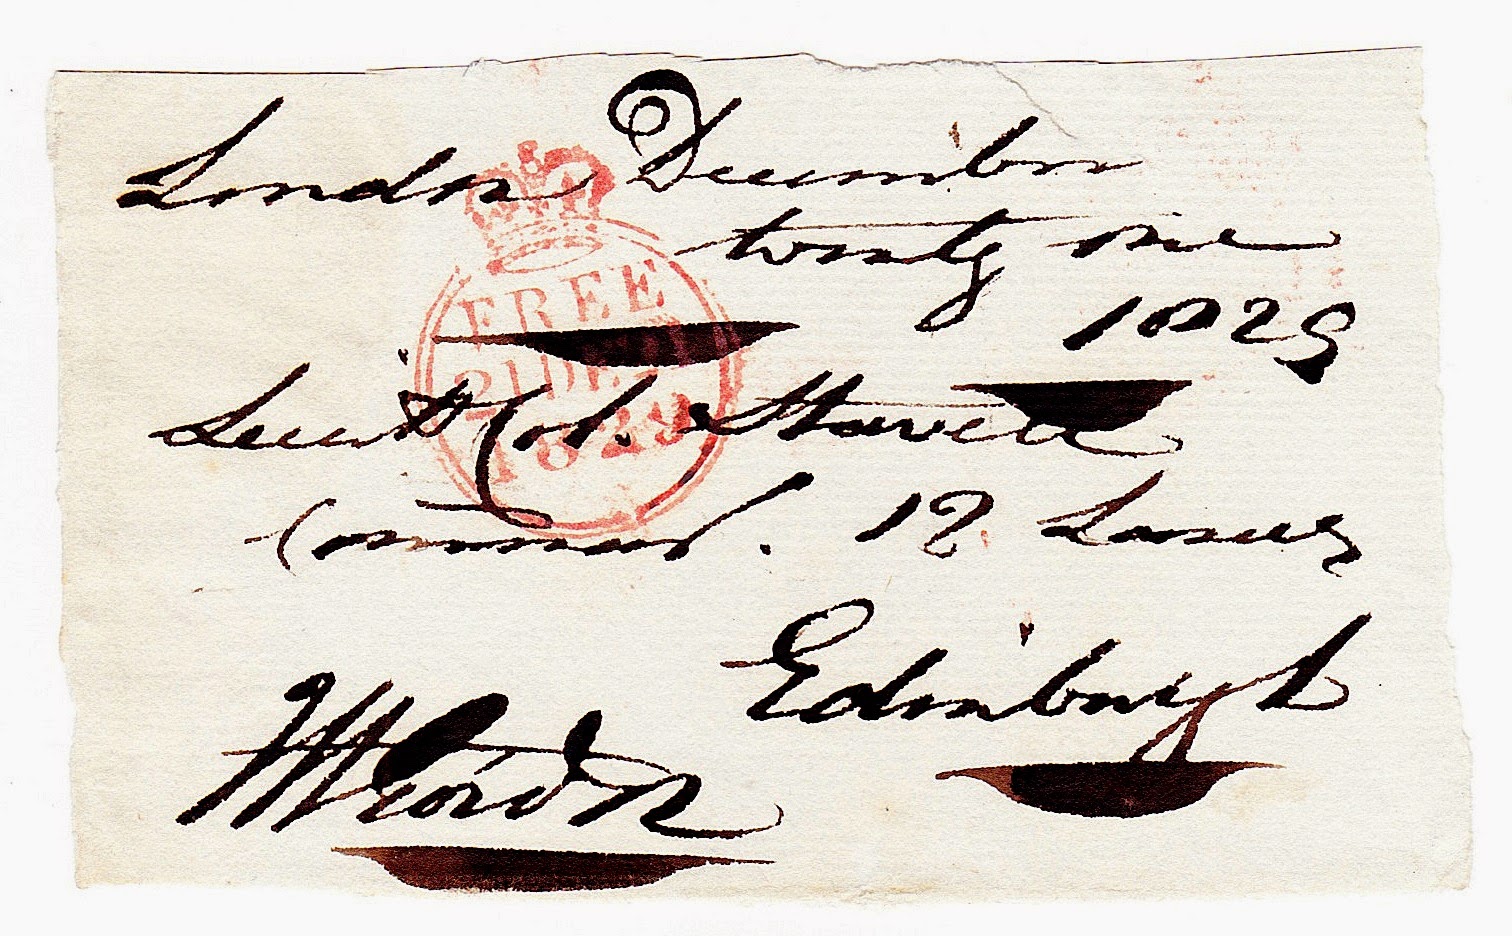 London December
twenty one
1829
FREE
21 DE
1829
Lieut Col. Stawell
Command. 12 Lancers
Edinburgh
Gordon